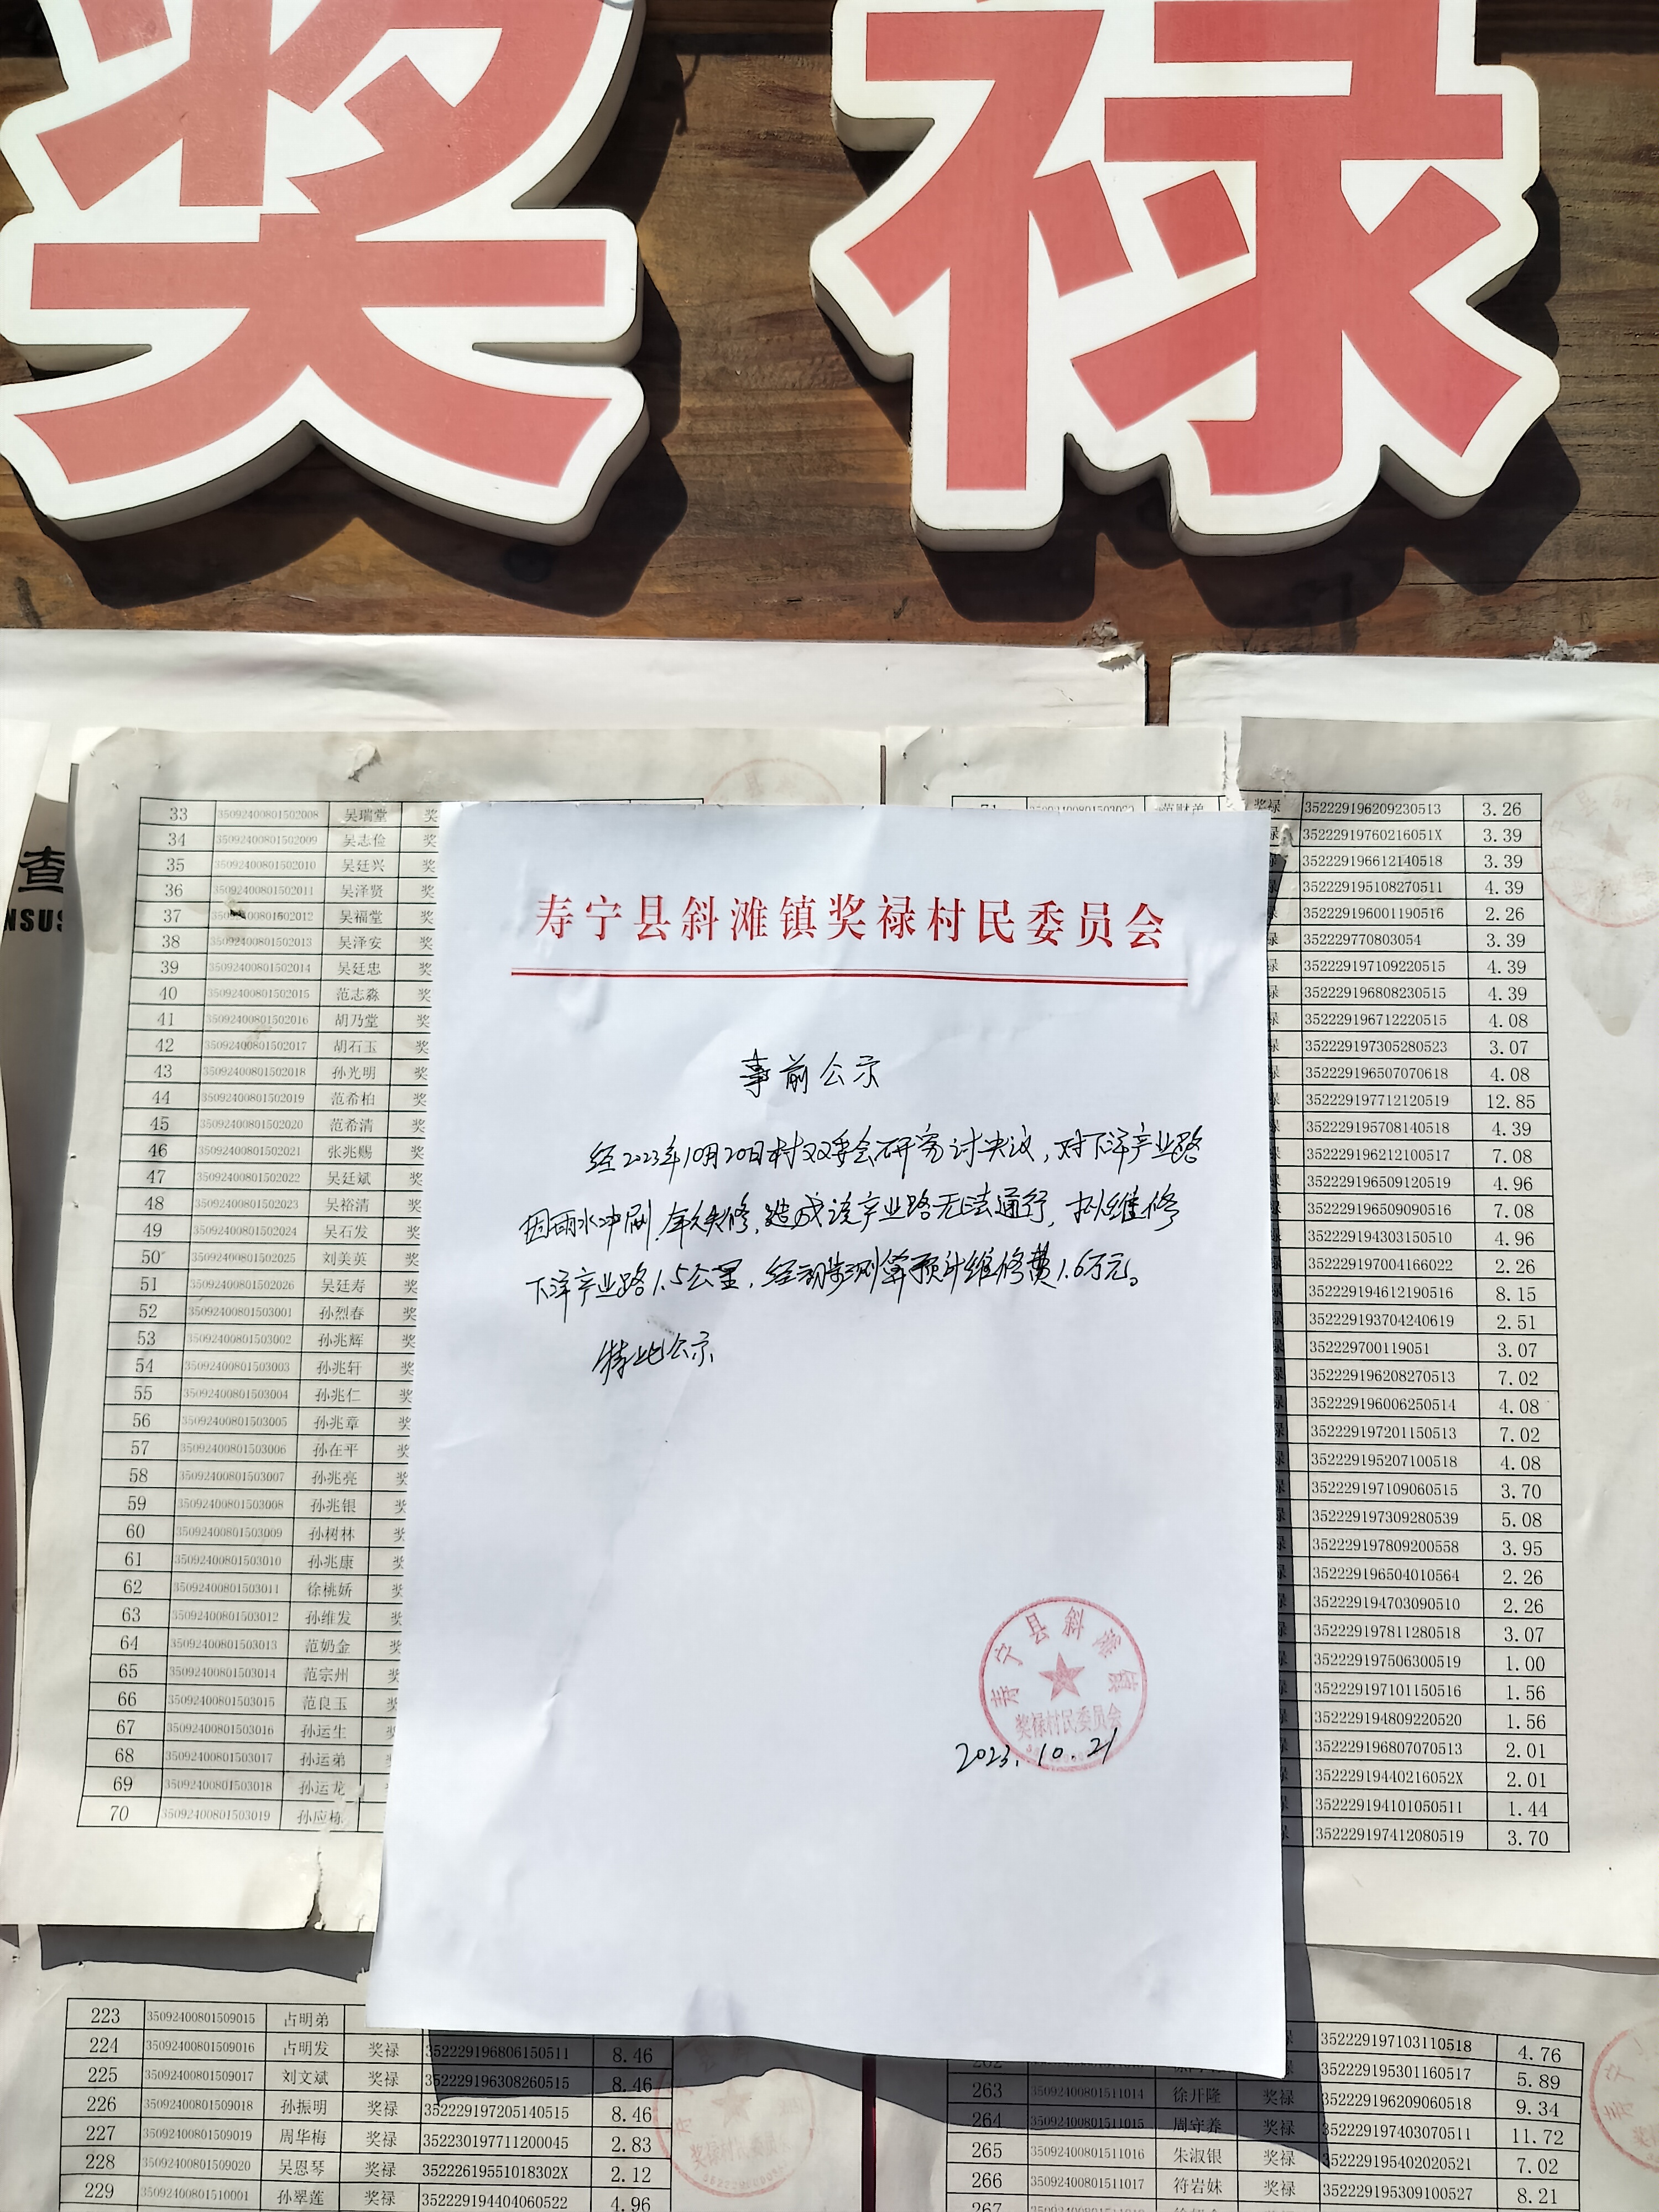 奖禄
33 35092400801502008 吴瑞堂 奖
34 35092400801502009 吴志俭 奖
35 35092400801502010 吴廷兴 奖
36 35092400801502011 吴泽贤 奖
37 35092400801502012 吴福堂 奖
38 35092400801502013 吴泽安 奖
39 35092400801502014 吴廷忠 奖
40 35092400801502015 范志淼 奖
41 35092400801502016 胡乃堂 奖
42 35092400801502017 胡石玉 奖
43 35092400801502018 孙光明 奖
44 35092400801502019 范希柏 奖
45 35092400801502020 范希清 奖
46 35092400801502021 张兆赐 奖
47 35092400801502022 吴廷斌 奖
48 35092400801502023 吴裕清 奖
49 35092400801502024 吴石发 奖
50 35092400801502025 刘美英 奖
51 35092400801502026 吴廷寿 奖
52 35092400801503001 孙烈春 奖
53 35092400801503002 孙兆辉 奖
54 35092400801503003 孙兆轩 奖
55 35092400801503004 孙兆仁 奖
56 35092400801503005 孙兆章 奖
57 35092400801503006 孙在平 奖
58 35092400801503007 孙兆亮 奖
59 35092400801503008 孙兆银 奖
60 35092400801503009 孙树林 奖
61 35092400801503010 孙兆康 奖
62 35092400801503011 徐桃娇 奖
63 35092400801503012 孙维发 奖
64 35092400801503013 范奶金 奖
65 35092400801503014 范宗州 奖
66 35092400801503015 范良玉 奖
67 35092400801503016 孙运生 奖
68 35092400801503017 孙运弟 奖
69 35092400801503018 孙运龙
70 35092400801503019 孙应栋
寿宁县斜滩镇奖禄村民委员会
事前公示
经2023年10月20日村双委会研究讨决议，对下洋产业路
因雨水冲刷，年久失修，造成该产业路无法通行，拟维修
下洋产业路1.5公里，经初步测算预计维修费1.6万元。
特此公示
寿宁县斜滩镇
奖禄村民委员会
2023.10.21
奖禄 352229196209230513 3.26
35222919760216051X 3.39
352229196612140518 3.39
352229195108270511 4.39
352229196001190516 2.26
352229770803054 3.39
352229197109220515 4.39
352229196808230515 4.39
352229196712220515 4.08
352229197305280523 3.07
352229196507070618 4.08
352229197712120519 12.85
352229195708140518 4.39
352229196212100517 7.08
352229196509120519 4.96
352229196509090516 7.08
352229194303150510 4.96
352229197004166022 2.26
352229194612190516 8.15
352229193704240619 2.51
352229700119051 3.07
352229196208270513 7.02
352229196006250514 4.08
352229197201150513 7.02
352229195207100518 4.08
352229197109060515 3.70
352229197309280539 5.08
352229197809200558 3.95
352229196504010564 2.26
352229194703090510 2.26
352229197811280518 3.07
352229197506300519 1.00
352229197101150516 1.56
352229194809220520 1.56
352229196807070513 2.01
35222919440216052X 2.01
352229194101050511 1.44
352229197412080519 3.70
223 35092400801509015 占明弟
224 35092400801509016 占明发 奖禄 352229196806150511 8.46
225 35092400801509017 刘文斌 奖禄 352229196308260515 8.46
226 35092400801509018 孙振明 奖禄 352229197205140515 8.46
227 35092400801509019 周华梅 奖禄 352230197711200045 2.83
228 35092400801509020 吴恩琴 奖禄 35222619551018302X 2.12
229 35092400801510001 孙翠莲 奖禄 352229194404060522 4.96
352229197103110518 4.76
352229195301160517 5.89
263 35092400801511014 徐开隆 奖禄 352229196209060518 9.34
264 35092400801511015 周守养 奖禄 352229197403070511 11.72
265 35092400801511016 朱淑银 奖禄 352229195402020521 7.02
266 35092400801511017 符岩妹 奖禄 352229195309100527 8.21
267